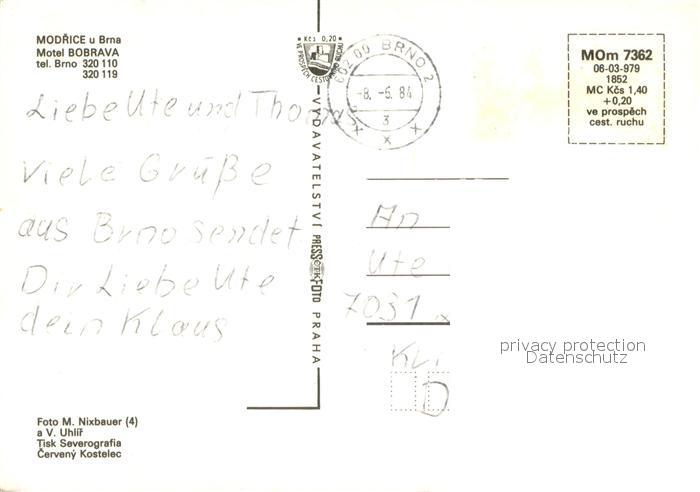 MODŘICE u Brna
Motel BOBRAVA
tel. Brno 320 110
320 119
Liebe Ute und Thomas
Viele Grüße
aus Brno sendet
Dir Liebe Ute
dein Klaus
Foto M. Nixbauer (4)
a V. Uhlíř
Tisk Severografia
Červený Kostelec
Kčs 0,20
VE PROSPĚCH CESTOVNÍHO RUCHU
VYDAVATELSTVÍ PRESSFOTO PRAHA
602 00 BRNO 2
-8.-6.84
3
x x x
MOm 7362
06-03-979
1852
MC Kčs 1,40
+0,20
ve prospěch
cest. ruchu
An
Ute
7031
D
privacy protection
Datenschutz